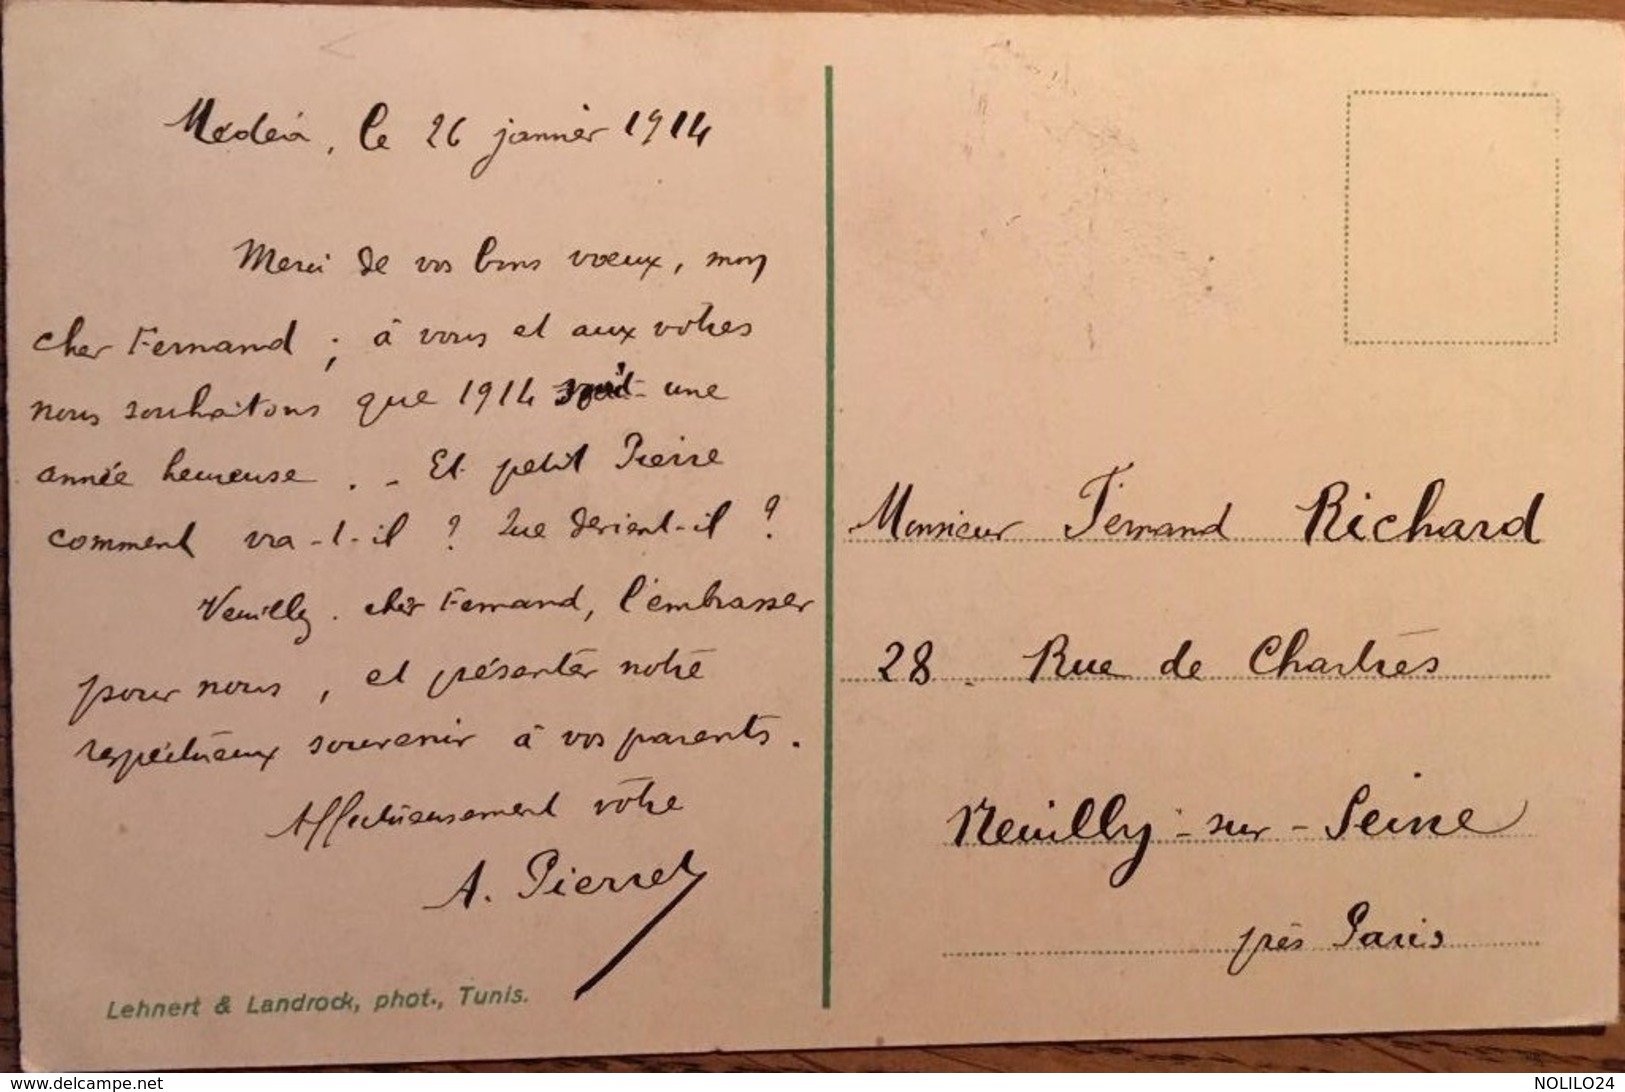 Médéa, le 26 janvier 1914
Merci de vos bons voeux, mon
cher Fernand ; à vous et aux vôtres
nous souhaitons que 1914 soit une
année heureuse . - Et petit Pierre
comment va-t-il ? Que devient-il ?
Veuillez . cher Fernand, l'embrasser
pour nous , et présenter notre
respectueux souvenir à vos parents.
Affectueusement vôtre
A. Pierret
Lehnert & Landrock, phot., Tunis.
Monsieur Fernand Richard
28. Rue de Chartres
Neuilly-sur-Seine
près Paris
www.delcampe.net
NOLILO24